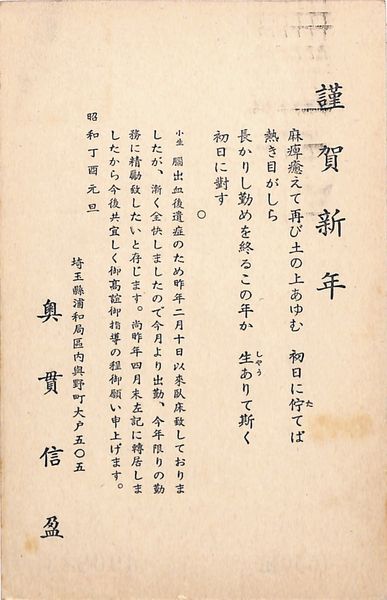 謹賀新年
麻痺癒えて再び土の上あゆむ　初日に佇てば
熱き目がしら
長かりし勤めを終るこの年か　生ありて斯く
初日に對す
○
小生　腦出血後遺症のため昨年二月十日以來臥床致しておりま
したが、漸く全快しましたので今月より出勤、今年限りの勤
務に精勵致したいと存じます。尚昨年四月末左記に轉居しま
したから今後共宜しく御高誼御指導の程御願い申上げます。
昭和丁酉元旦
埼玉縣浦和局區内與野町大戸五〇五
奥貫信盈